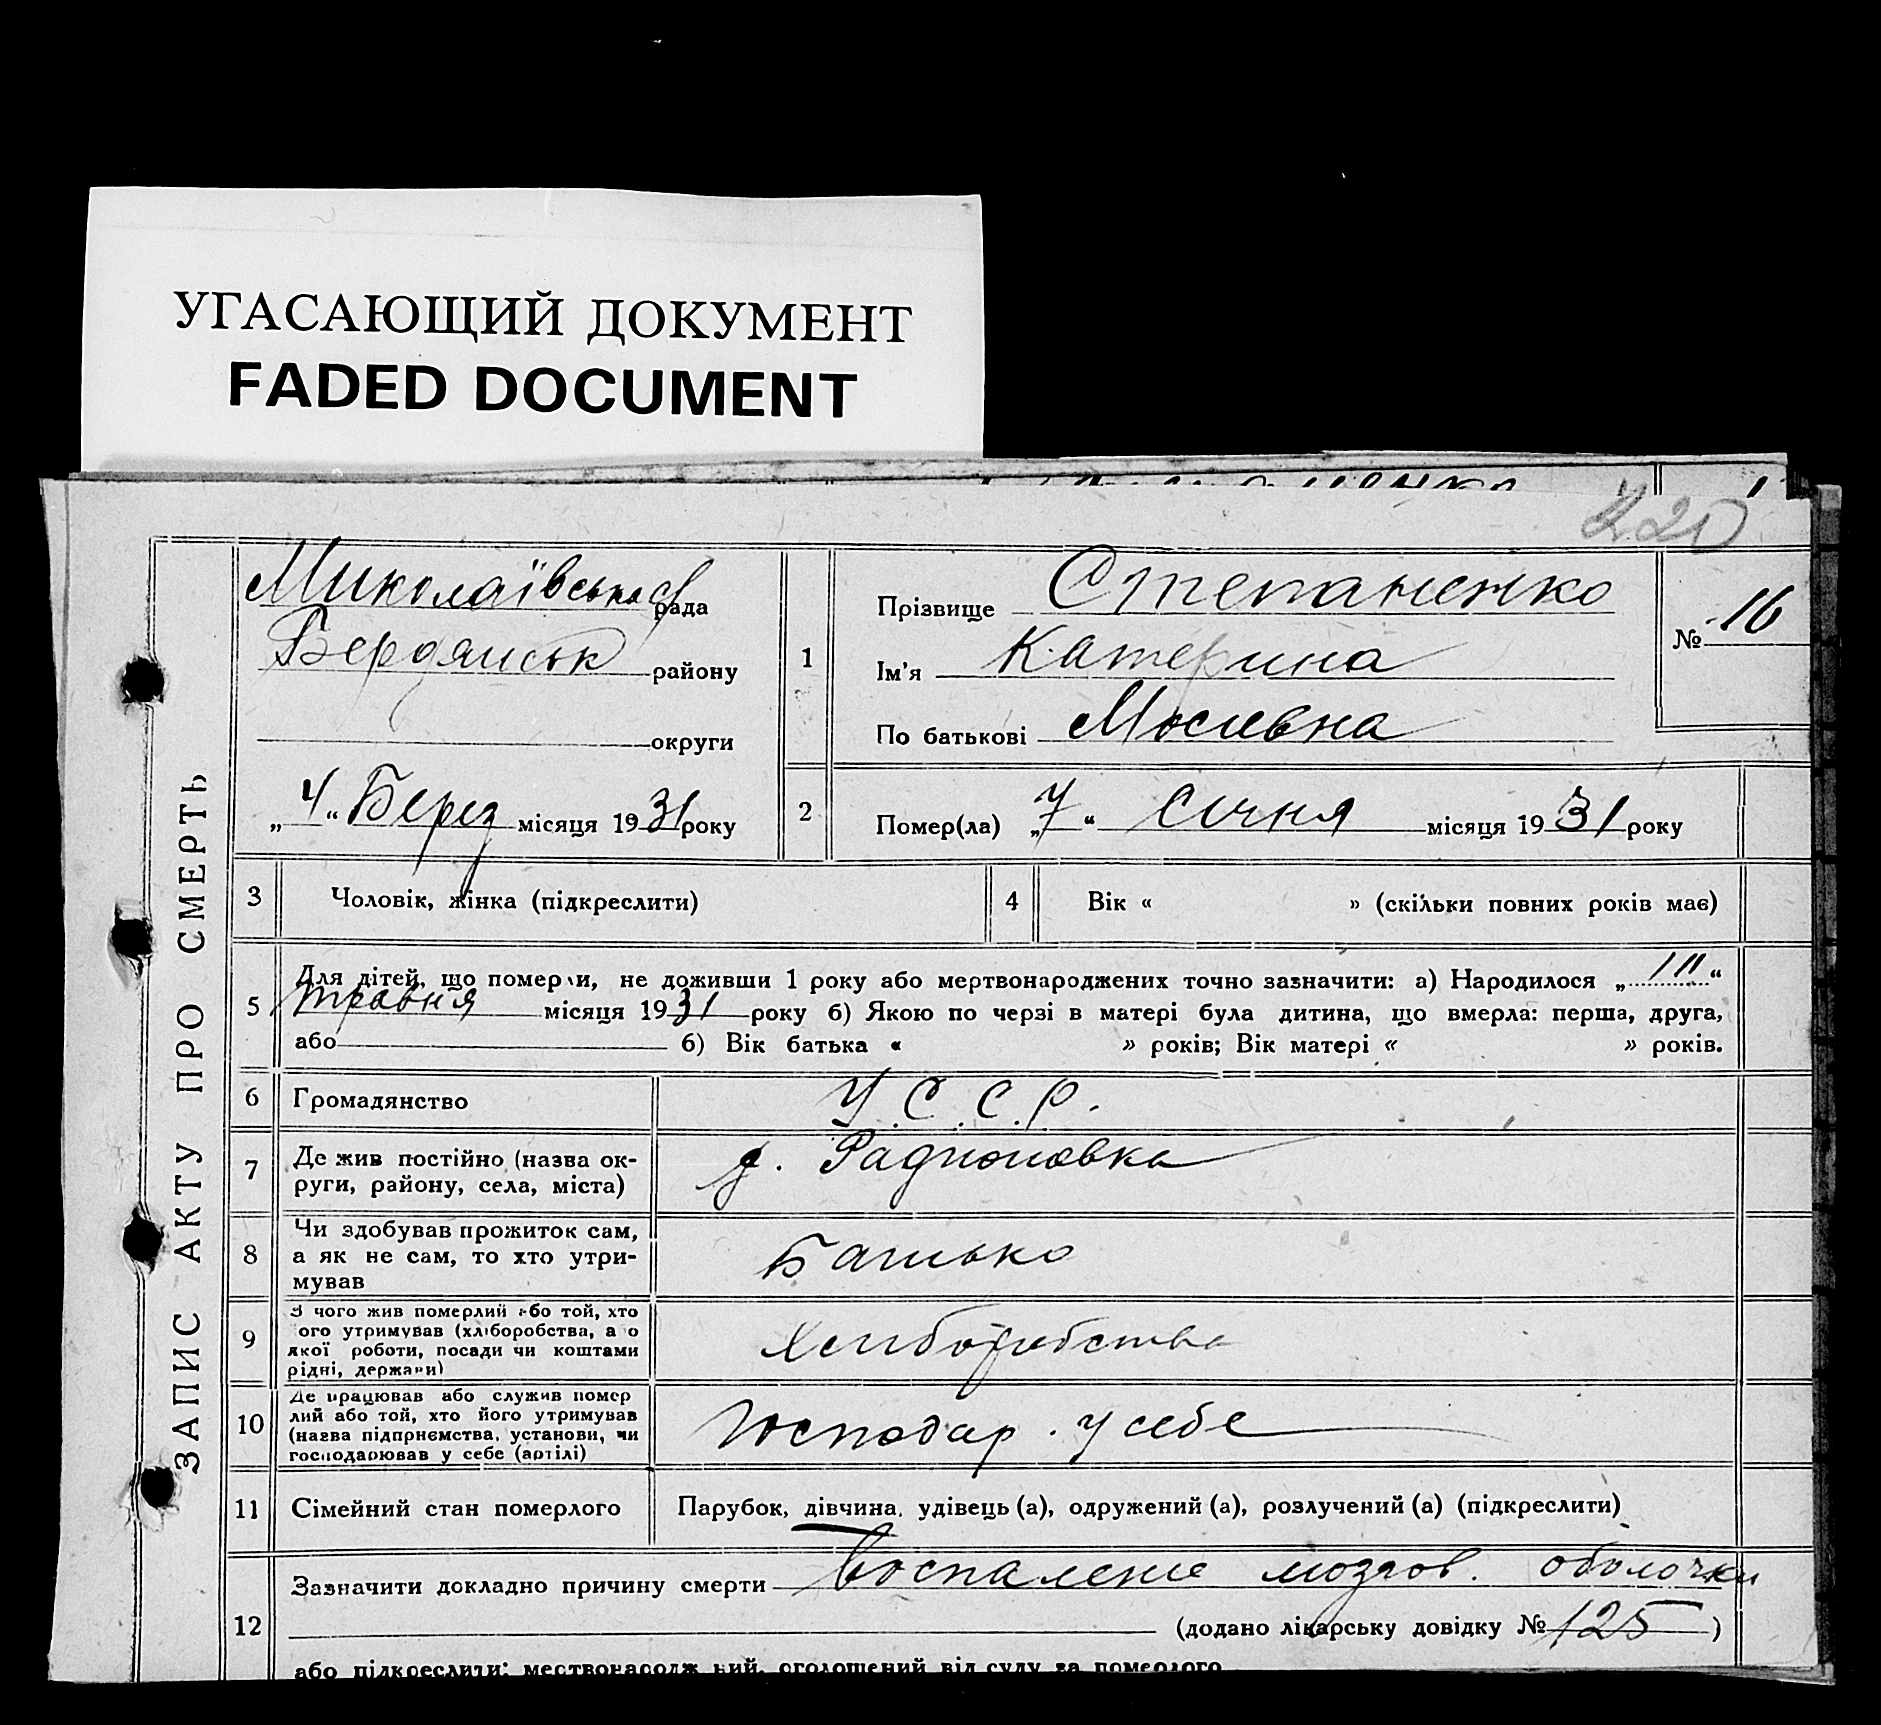 УГАСАЮЩИЙ ДОКУМЕНТ
FADED DOCUMENT
220
ЗАПИС АКТУ ПРО СМЕРТЬ
Миколаївська рада
Бердянськ району
округи
„4“ Берез місяця 1931 року
1
Прізвище Степаненко
Ім'я Катерина
По батькові Мосивна
№ 16
2
Помер(ла) „7“ Січня місяця 1931 року
3 Чоловік, жінка (підкреслити)
4 Вік « » (скільки повних років має)
5 Для дітей, що померли, не доживши 1 року або мертвонароджених точно зазначити: а) Народилося „ “
травня місяця 1931 року б) Якою по черзі в матері була дитина, що вмерла: перша, друга,
або б) Вік батька « » років; Вік матері « » років.
6 Громадянство У.С.С.Р.
7 Де жив постійно (назва ок-
руги, району, села, міста)
д. Радионовка
8 Чи здобував прожиток сам,
а як не сам, то хто утри-
мував
Батько
9 З чого жив померлий або той, хто
ого утримував (хліборобства, а о
якої роботи, посади чи коштами
рідні, держави)
Хлиборобства
10 Де працював або служив помер
лий або той, хто його утримував
(назва підприємства, установи, чи
господарював у себе (артілі)
Господар. у себе
11 Сімейний стан померлого Парубок, дівчина, удівець (а), одружений (а), розлучений (а) (підкреслити)
12 Зазначити докладно причину смерти Воспаление мозгов. оболочки
(додано лікарську довідку № 125 )
або підкреслити: мертвонародж ний, оголошений від суду за померлого